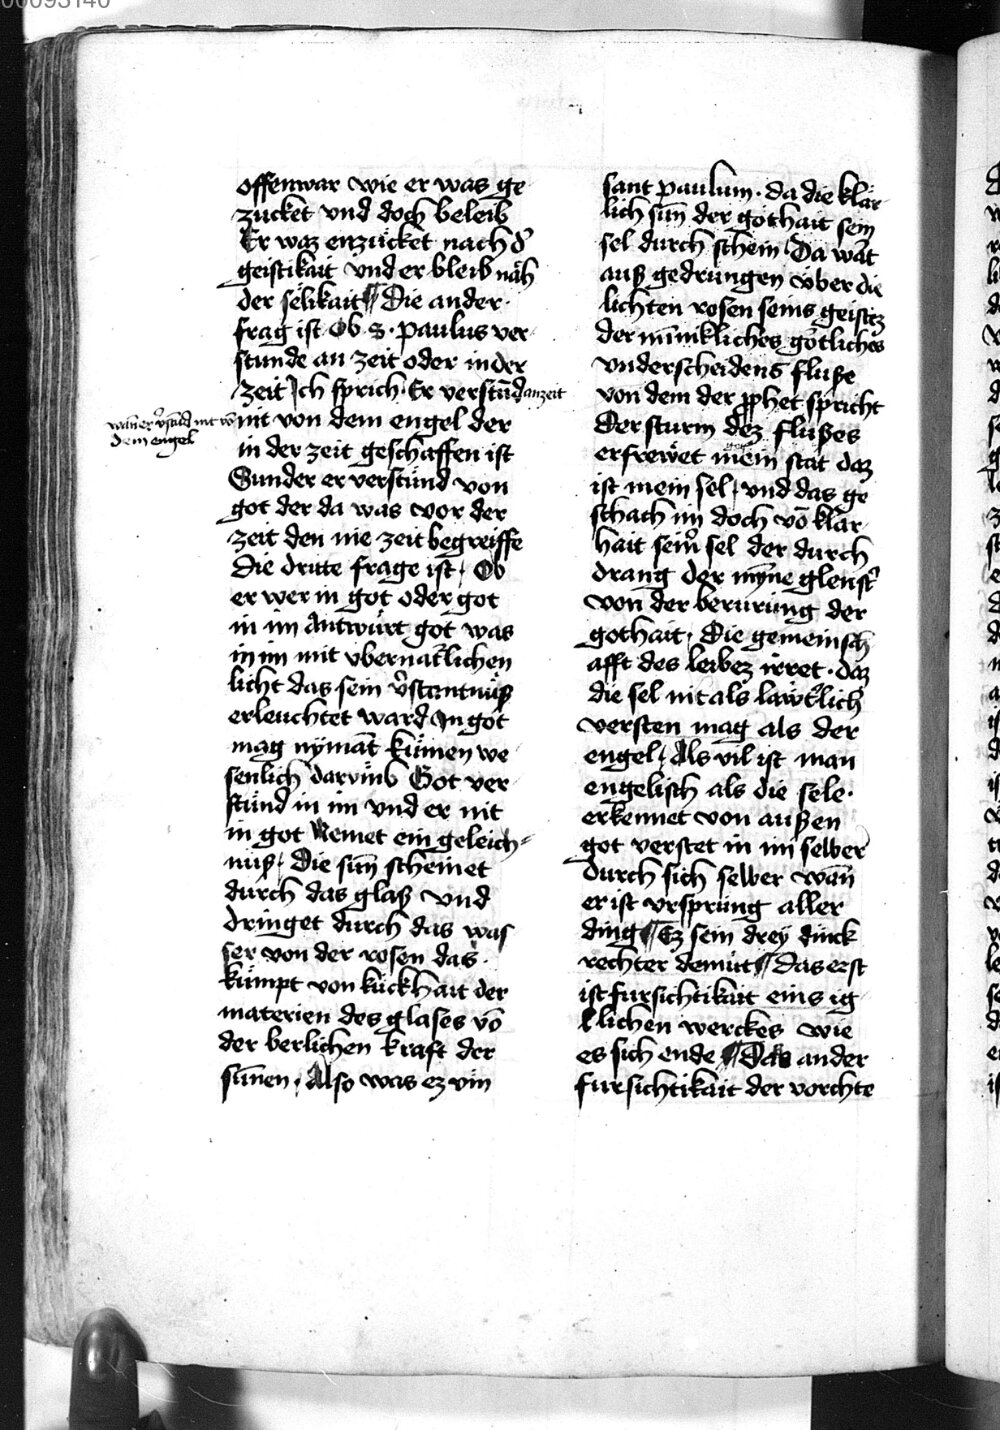 00093140
offenwar wie er was ge
zucket vnd doch beleib
Er waz enzucket nach d'
geistikait vnd er bleib nåh
der selikait ¶ Die ander ·
frag ist · Ob · S · paulus ver
stunde an zeit oder in der
zeit Ich sprich · Er verstūd an zeit
wan er v̓stūd nit vō
dem engel
nit von dem engel der
in der zeit geschaffen ist
Sunder er verstůnd von
got der da was vor der
zeit den nie zeit begreiffe
Die dritte frage ist / Ob
er wer in got oder got
in im Antwürt got was
in im mit vbernat̓lichen
licht das sein v̓stantnüß
erleuchtet ward In got
mag nÿmāt kümen we
senlich darvmb Got ver
stůnd in im vnd er nit
in got Nemet ein geleich=
nüß / Die sun̄ scheinet
durch das glaß vnd
dringet durch das was
ser von der rosen das ·
kümpt von kückhait der
materien des glases vō
der berlichen kraft der
sūnen / Also was ez vm
sant paulum · da die klar
lich sun̄ der gothait sein
sel durch schein Da wāt
auß gedrungen über die
lichten rosen seins geistez
der minnkliches götliches
vnderscheidens flußе
von dem der ꝓphet spricht
Der sturm dez flußes
erfrewet mein stat daz
ist mein sel / vnd das ge
schach im doch vō klar
hait sein̓ sel der durch
drang der mÿne glenst̓
von der berürung der
gothait / Die gemeinsch
afft des leibez irret · daz
die sel nit als lawt̓lich
versten mag als der
engel / Als vil ist man
engelisch als die sele ·
erkennet von außen
got verstet in im selber
durch sich selber wan̄
er ist vrsprüng aller
ding ¶ Ez sein drey dinck
rechter demüt ¶ das erst
ist fursichtikait eins ig
klichen werckes wie
es sich ende ¶ Das ander
fursichtikait der vorchte